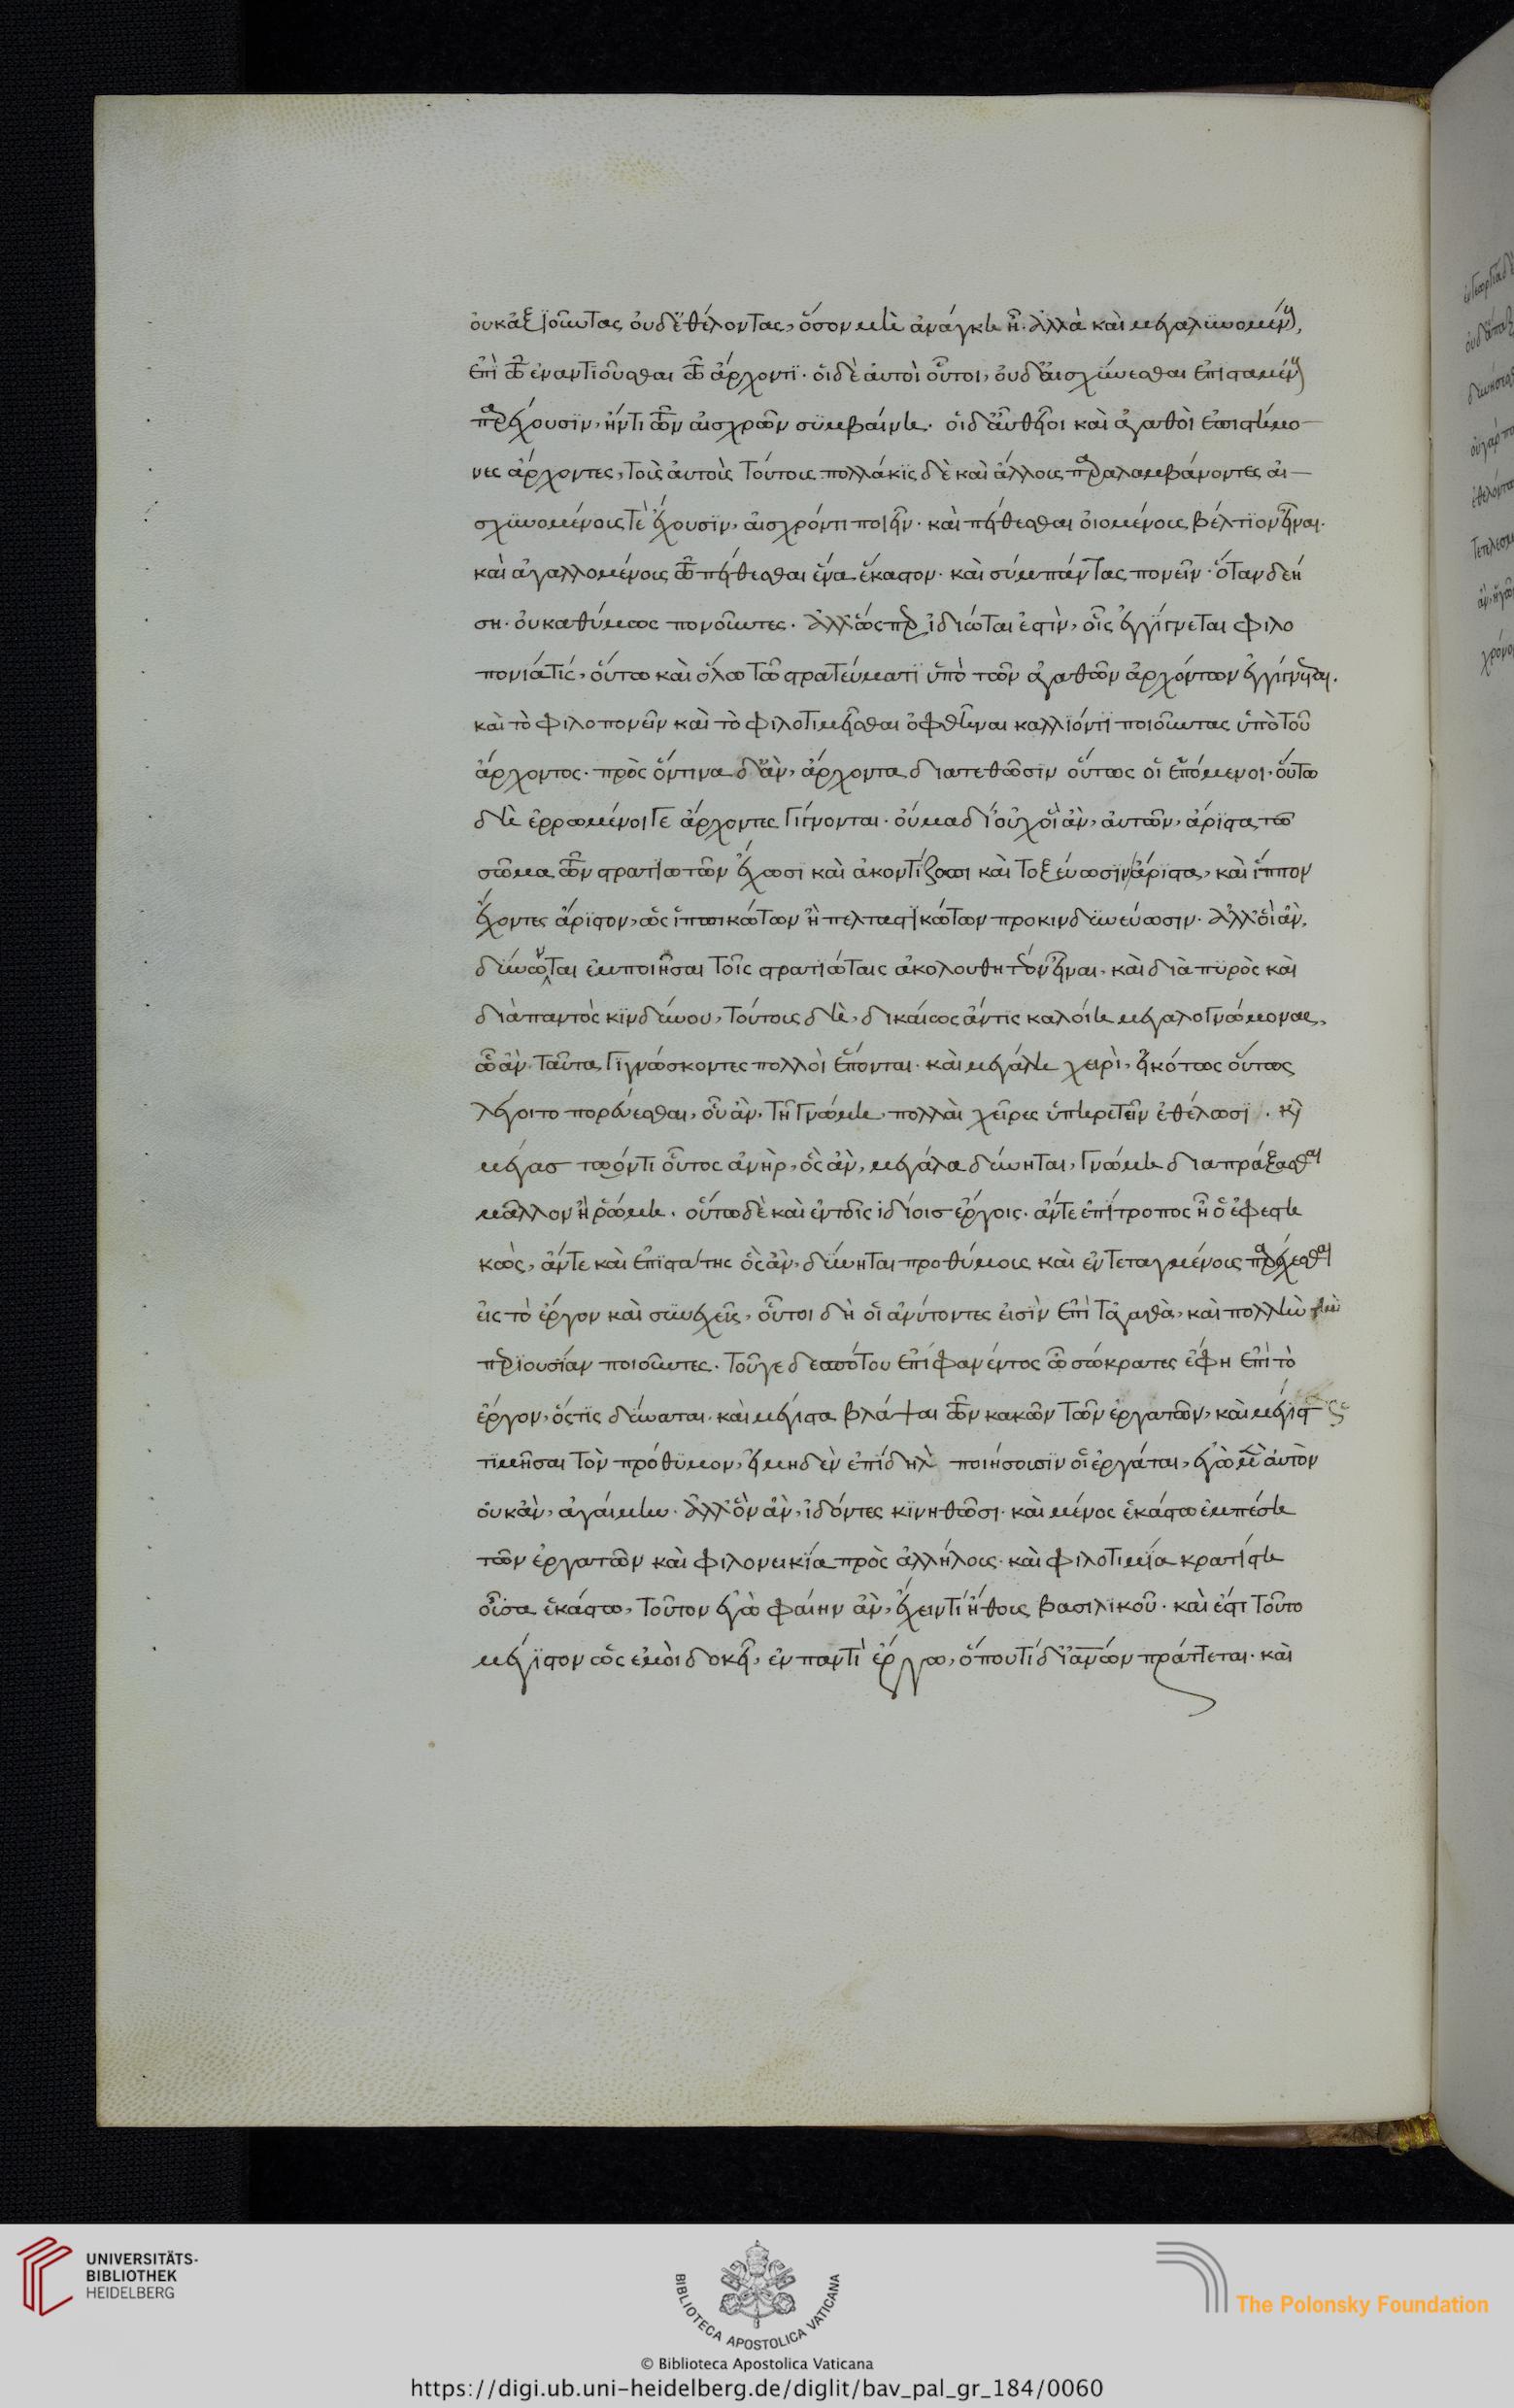 οὐκ ἀξιοῦντας οὐδ' ἐθέλοντας, ὅσον μὴ ἀνάγκη ἦ· ἀλλὰ καὶ μεγαλυνομένους,
ἐπὶ τῶ ἐναντιοῦσθαι τῶ ἄρχοντι· οἱ δὲ αὐτοὶ οὗτοι, οὐδ' αἰσχύνεσθαι ἐπισταμένους
παρέχουσιν, ἤν τι τῶν αἰσχρῶν συμβαίνη· οἱ δ' αὖ θεῖοι καὶ ἀγαθοὶ ἐπιστήμο-
νες ἄρχοντες, τοὺς αὐτοὺς τούτους πολλάκις δὲ καὶ ἄλλους παραλαμβάνοντες αἰ-
σχυνομένους τὲ ἔχουσιν, αἰσχρόν τι ποιεῖν· καὶ πείθεσθαι οἰομένους βέλτιον εἶναι·
καὶ ἀγαλλομένους τῶ πείθεσθαι ἕνα ἕκαστον· καὶ σύμπαντας πονεῖν· ὅταν δεή
ση· οὐκ ἀθύμως πονοῦντες· ἀλλ' ὥσπερ ἰδιώταις ἐστὶν, οἷς ἐγγίγνεται φιλο
πονία τίς, οὕτω καὶ ὅλω τῶ στρατεύματι ὑπὸ τῶν ἀγαθῶν ἀρχόντων ἐγγίγνεται.
καὶ τὸ φιλοπονεῖν καὶ τὸ φιλοτιμεῖσθαι ὀφθῆναι καλλιόν τι ποιοῦντας ὑπὸ τοῦ
ἄρχοντος· πρὸς ὅντινα δ' ἂν, ἄρχοντα διατεθῶσιν οὕτως οἱ ἑπόμενοι· οὗτοι
δὴ ἐρρωμένοι γε ἄρχοντες γίγνονται· οὐ μὰ δί' οὐχ οἳ ἂν, αὐτῶν, ἄριστα τὸ
σῶμα τῶν στρατιωτῶν ἔχωσι καὶ ἀκοντίζωσι καὶ τοξεύωσιν ἄριστα, καὶ ἵππον
ἔχοντες ἄριστον, ὡς ἱππικώτων ἢ πελταστικώτων προκινδυνεύωσιν· ἀλλ' οἳ ἂν,
δύνωνται ἐμποιῆσαι τοῖς στρατιώταις ἀκολουθητέον εἶναι, καὶ διὰ πυρὸς καὶ
διὰ παντὸς κινδύνου, τούτους δὴ, δικαίως ἄν τις καλοίη μεγαλογνώμονας,
ᾧ ἂν ταῦτα γιγνώσκοντες πολλοὶ ἕπονται· καὶ μεγάλη χειρὶ, εἰκότως οὕτως
λέγοιτο πορεύεσθαι, οὗ ἂν, τῇ γνώμη, πολλαὶ χεῖρες ὑπηρετεῖν ἐθέλωσι· καὶ
μέγας τῶ ὄντι οὗτος ἀνὴρ, ὃς ἂν, μεγάλα δύνηται, γνώμη διαπράξασθαι
μᾶλλον ἢ ῥώμη. οὕτω δὲ καὶ ἐν τοῖς ἰδίοις ἔργοις. ἄν τε ἐπίτροπος ἦ ὁ ἐφεστη
κὼς, ἄν τε καὶ ἐπιστάτης ὃς ἂν, δύνηται προθύμους καὶ ἐντεταγμένους παρέχεσθαι
εἰς τὸ ἔργον καὶ συνεχεῖς, οὗτοι δὴ οἱ ἀνύτοντες εἰσὶν ἐπὶ τἀγαθὰ, καὶ πολλὴν τὴν
περιουσίαν ποιοῦντες. τοῦ γε δεσπότου ἐπιφανέντος ὦ σώκρατες ἔφη ἐπὶ τὸ
ἔργον, ὅστις δύναται, καὶ μέγιστα βλάψαι τῶν κακῶν τῶν ἐργατῶν, καὶ μέγιστα
τιμῆσαι τὸν πρόθυμον, εἰ μηδὲν ἐπίδηλον ποιήσουσιν οἱ ἐργάται, ἐγὼ μὲν αὐτὸν
οὐκ ἂν, ἀγαίμην· ἀλλ' ὃν ἂν, ἰδόντες κινηθῶσι· καὶ μένος ἑκάστω ἐμπέση
τῶν ἐργατῶν καὶ φιλονεικία πρὸς ἀλλήλους· καὶ φιλοτιμία κρατίστη
οὖσα ἑκάστω, τοῦτον ἐγὼ φαίην ἂν, ἔχειν τί ἤθους βασιλικοῦ· καὶ ἔστι τοῦτο
μέγιστον ὡς ἐμοὶ δοκεῖ, ἐν παντὶ ἔργω, ὅπου τί δι' ἀνῶν πράττεται· καὶ
UNIVERSITÄTS-
BIBLIOTHEK
HEIDELBERG
BIBLIOTECA APOSTOLICA VATICANA
The Polonsky Foundation
© Biblioteca Apostolica Vaticana
https://digi.ub.uni-heidelberg.de/diglit/bav_pal_gr_184/0060